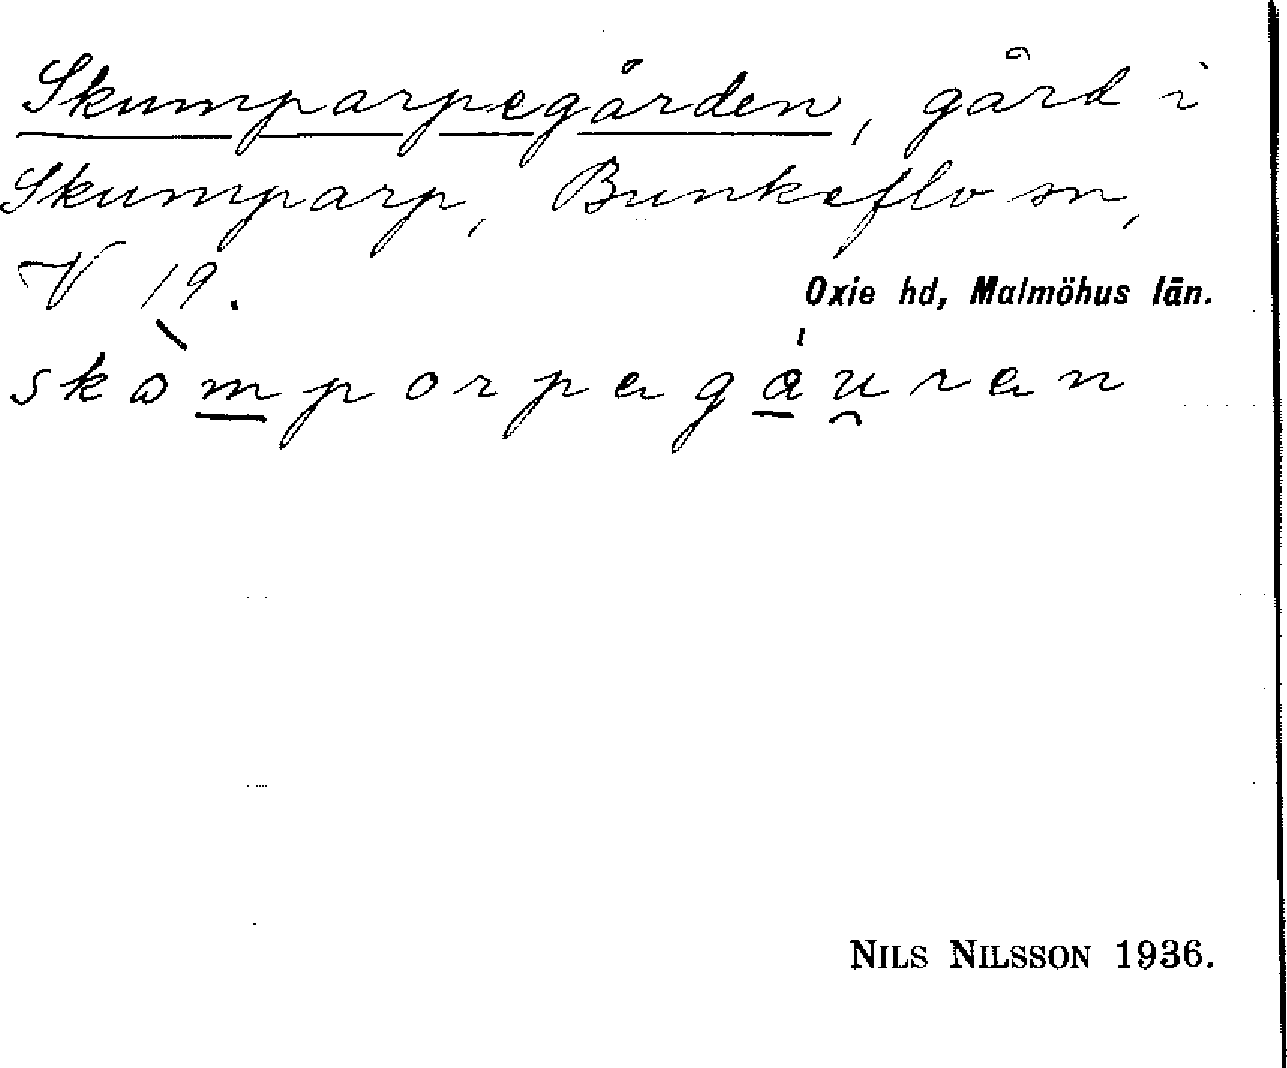 Skumparpegården, gård i
Skumparp, Bunkeflo sn,
N 19.
Oxie hd, Malmöhus län.
skòmporpegáu̯ren
NILS NILSSON 1936.